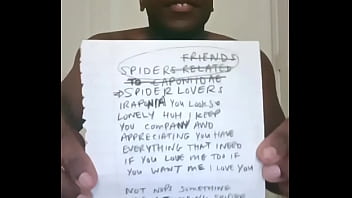 FRIENDS
SPIDERS RELATED
TO
SPIDER LOVERS
YOU LOOKS
LONELY HUH I KEEP
YOU COMPANY AND
APPRECIATING YOU HAVE
EVERYTHING THAT I NEED
IF YOU LOVE ME TOO IF
YOU WANT ME I LOVE YOU
NOT SOMETHING
SPIDER